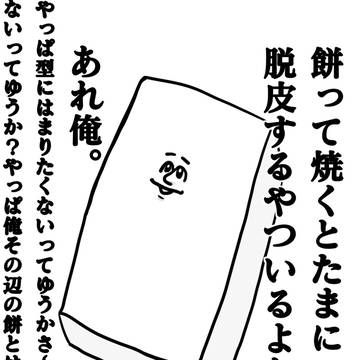 餅って焼くとたまに
脱皮するやついるよ
あれ俺。
やっぱ型にはまりたくないってゆうかさ
ないってゆうか？やっぱ俺その辺の餅と